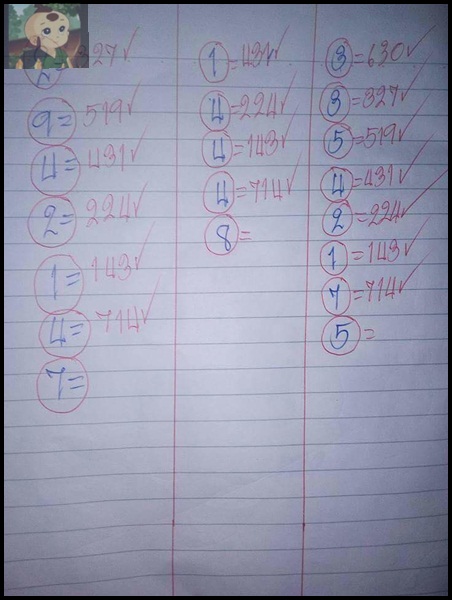 2= 327✓
9= 519✓
4= 431✓
2= 224✓
1= 143✓
4= 714✓
7=
1 = 431✓
4 = 224✓
4 = 143✓
4 = 714✓
8 =
3 = 630✓
3 = 327✓
5 = 519✓
4 = 431✓
2 = 224✓
1 = 143✓
7 = 714✓
5 =